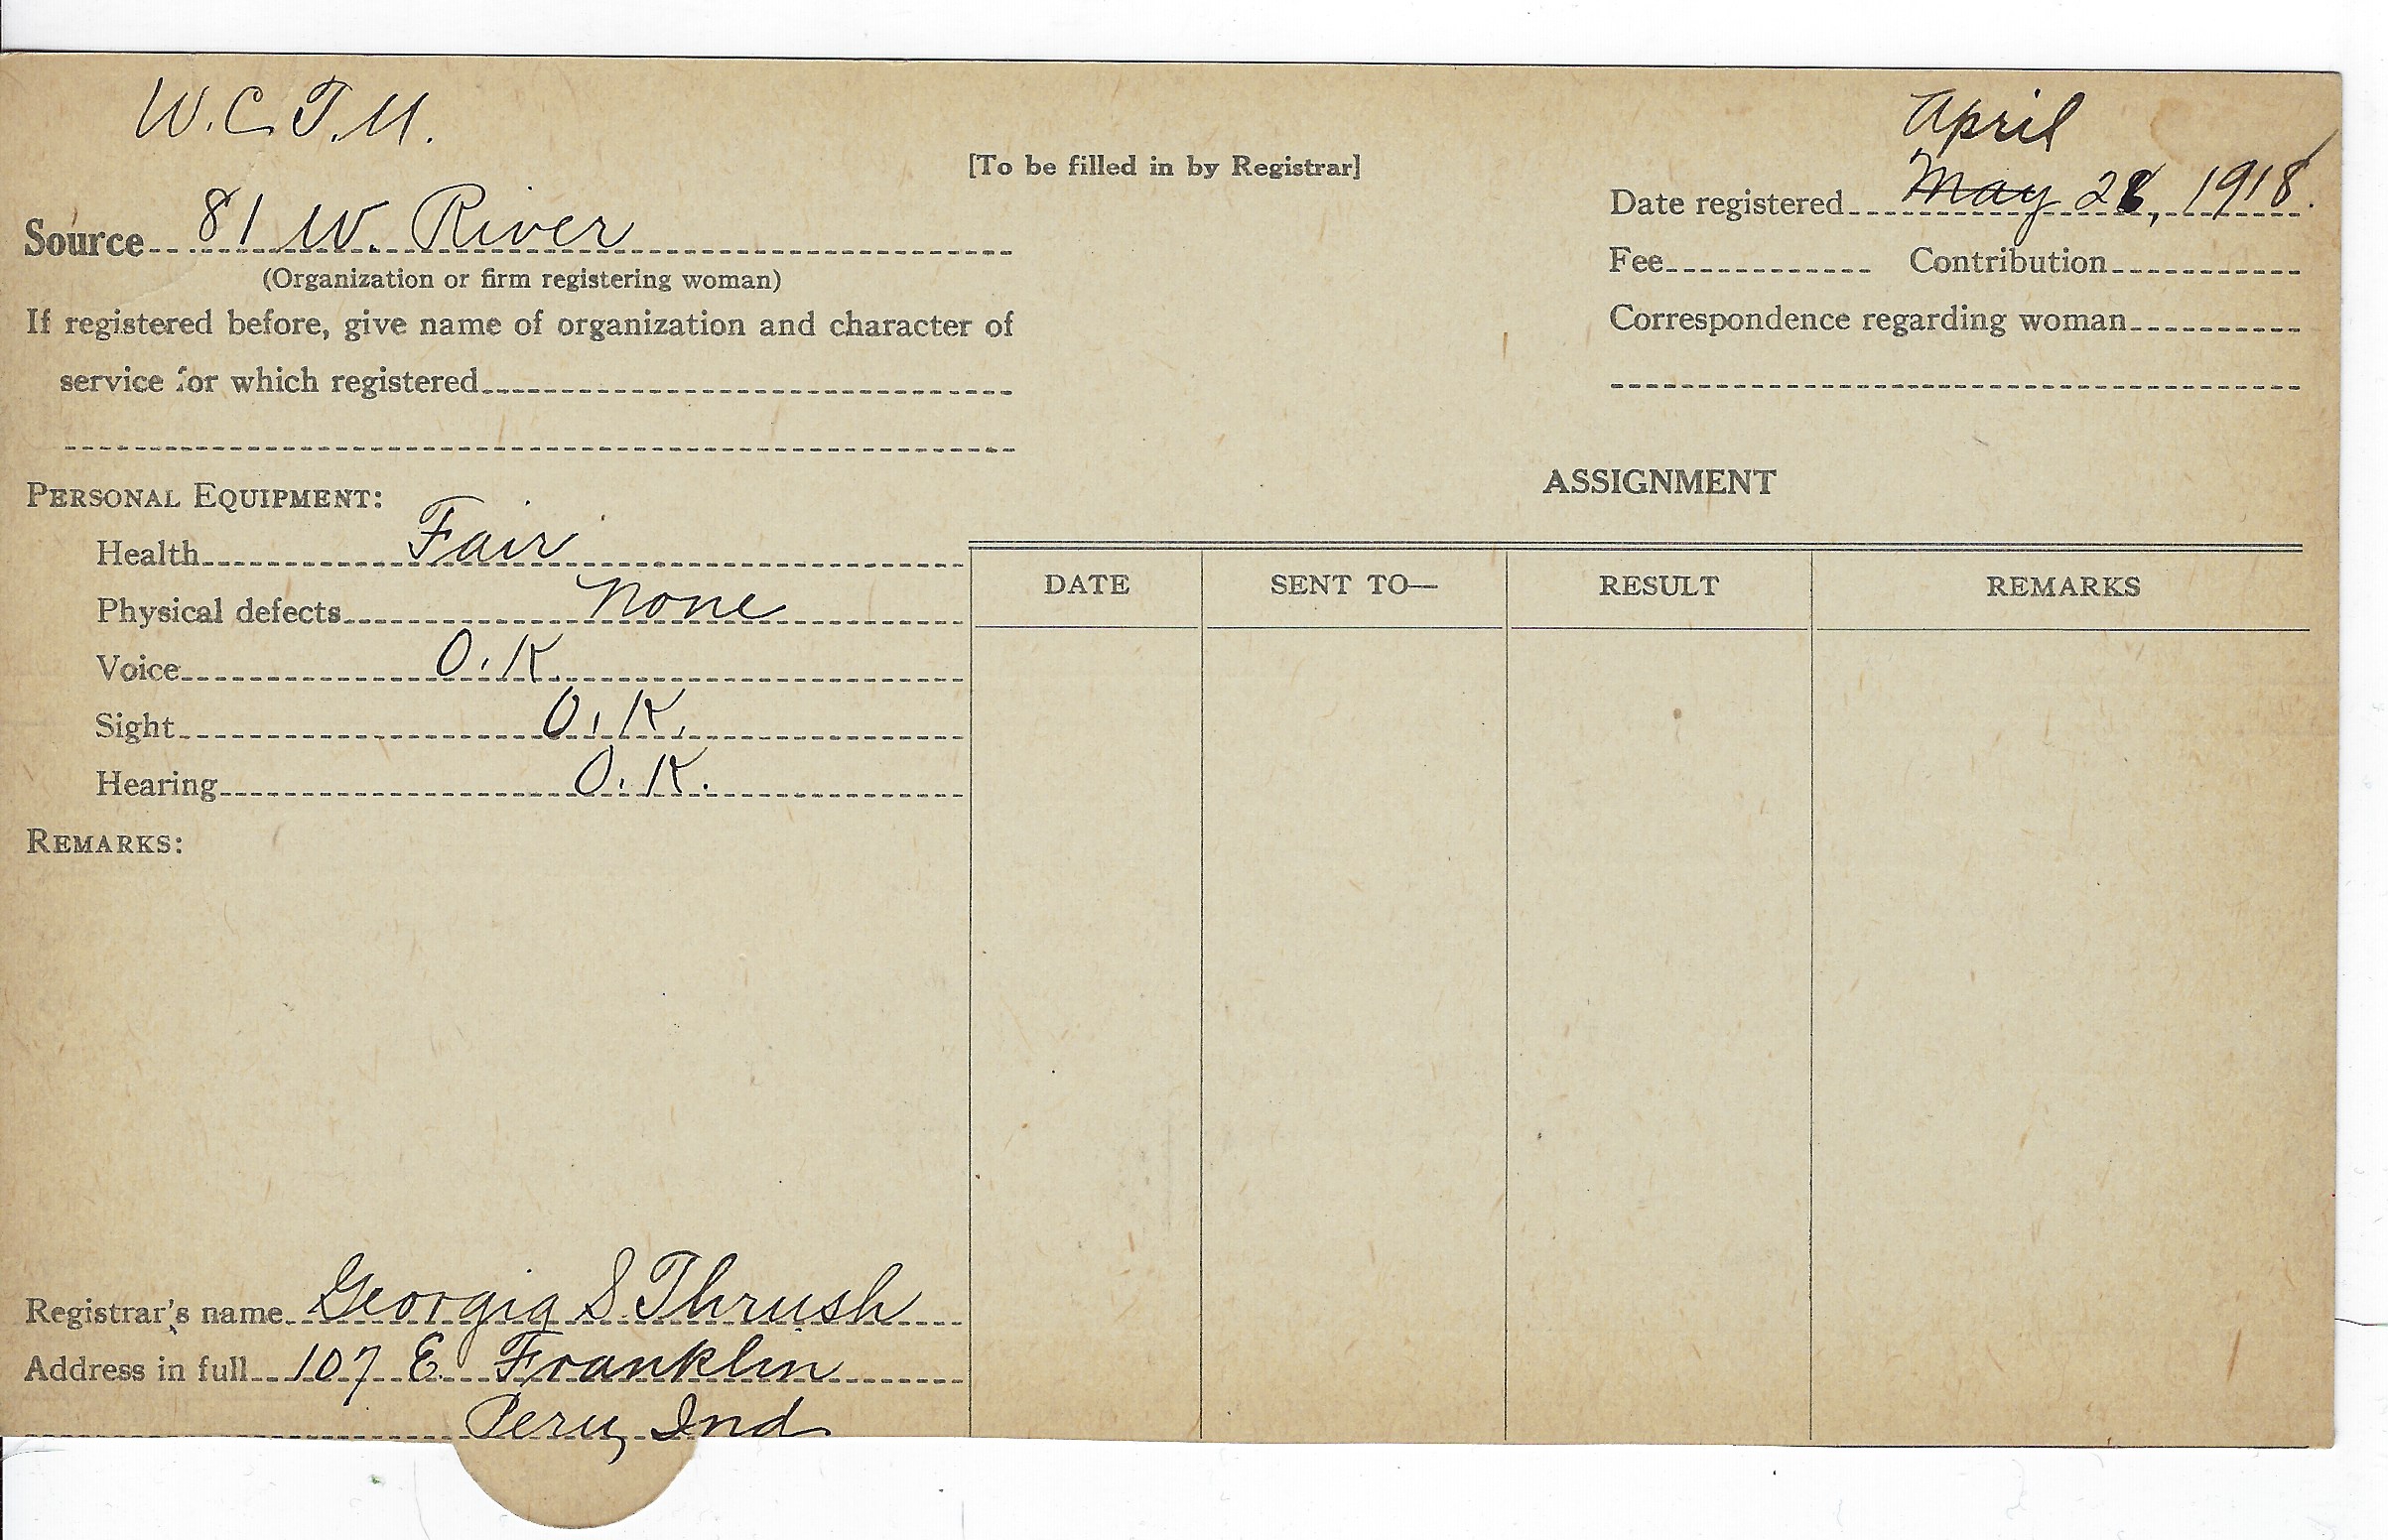 W.C.T.U.
April
[To be filled in by Registrar]
Date registered May 28, 1918.
Source 81 W. River
(Organization or firm registering woman)
Fee Contribution
If registered before, give name of organization and character of
service for which registered
Correspondence regarding woman
ASSIGNMENT
PERSONAL EQUIPMENT:
Health Fair
Physical defects None
Voice O.K.
Sight O.K.
Hearing O.K.
DATE SENT TO— RESULT REMARKS
REMARKS:
Registrar's name Georgia S Thrush
Address in full 107 E. Franklin
Peru, Ind